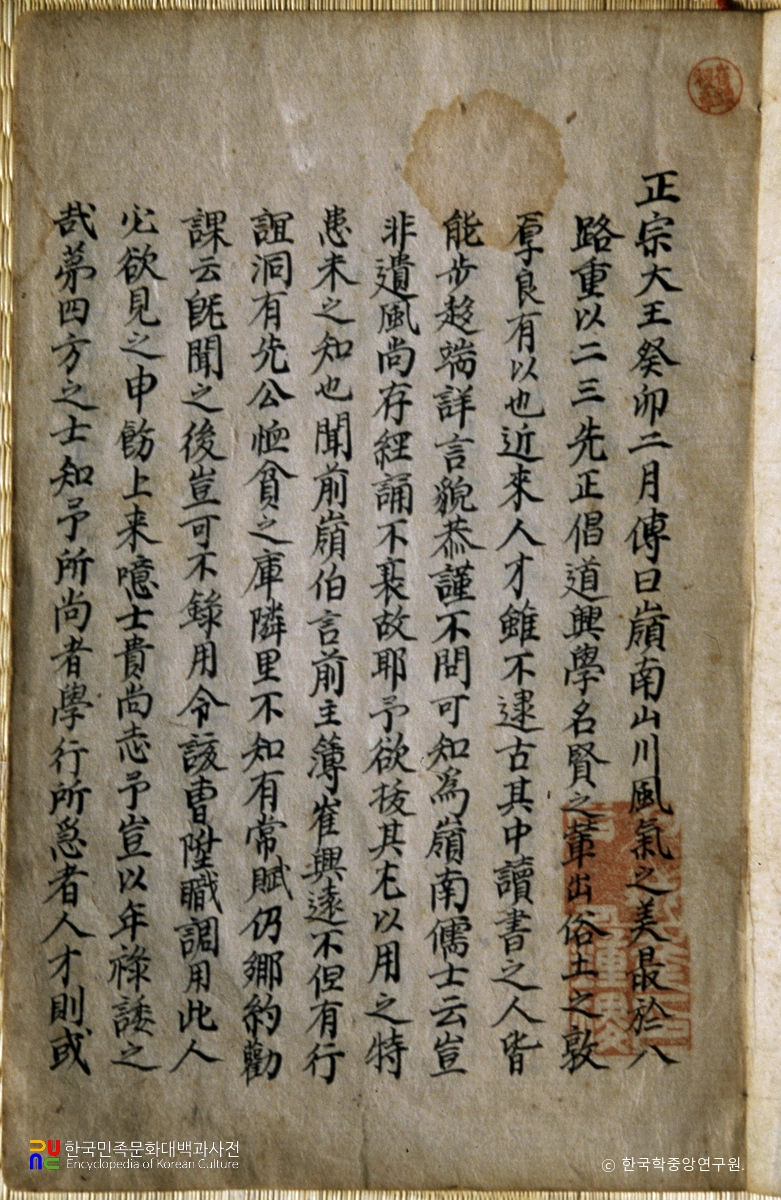 正宗大王癸卯二月傳曰嶺南山川風氣之美最於八
路重以二三先正倡道興學名賢之輩出俗土之敦
厚良有以也近來人才雖不逮古其中讀書之人皆
能步趍端詳言貌恭謹不問可知為嶺南儒士云豈
非遺風尚存經誦不衰故耶予欲拔其尤以用之特
患未之知也聞前嶺伯言前主簿崔興遠不但有行
誼洞有先公恤貧之庫隣里不知有常賦仍鄉約勸
課云旣聞之後豈可不錄用令該曹陞職調用此人
必欲見之申飭上来噫士貴尚志予豈以年祿諉之
哉苐四方之士知予所尚者學行所急者人才則或
한국민족문화대백과사전
Encyclopedia of Korean Culture
© 한국학중앙연구원.